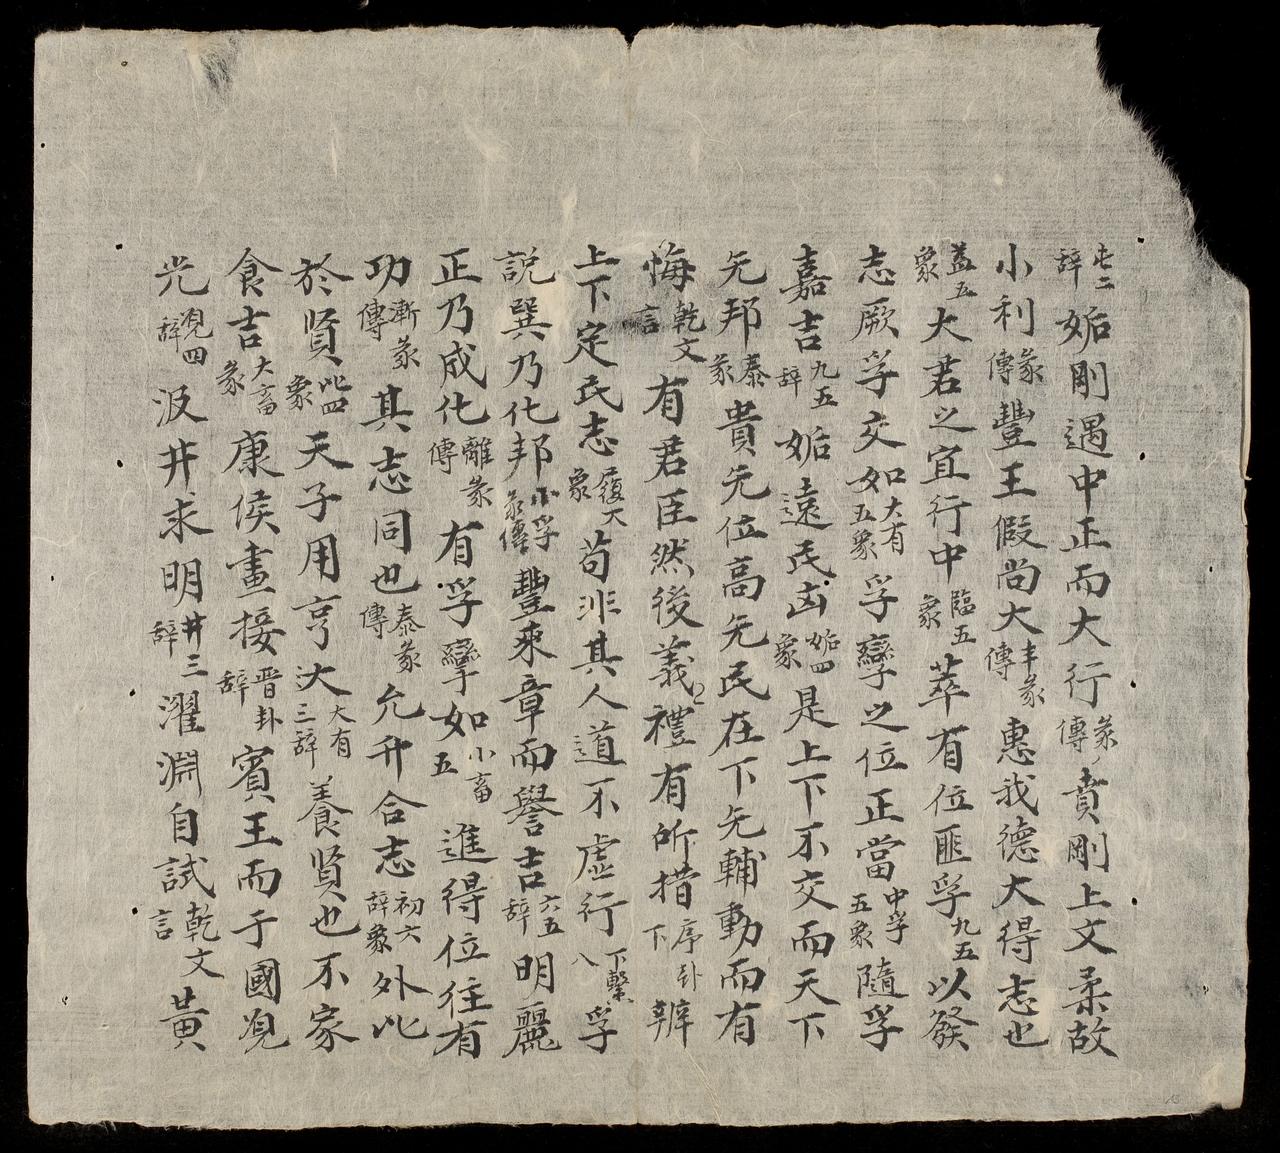 屯二辞姤剛遇中正而大行彖傳賁剛上文柔故
小利彖傳豐王假尚大丰彖傳惠我德大得志也
益五象大君之宜行中臨五象萃有位匪孚九五以發
志厥孚交如大有五象孚攣之位正當中孚五象隨孚
嘉吉九五辞姤遠民凶姤四象是上下不交而天下
无邦泰彖貴无位高无民在下无輔動而有
悔乾文言有君臣然後義禮有所措序卦下辨
上下定民志履大象苟非其人道不虛行下繫八孚
説巽乃化邦中孚彖傳豐来章而譽吉六五辞明麗
正乃成化離彖傳有孚攣如小畜五進得位往有
功漸彖傳其志同也泰彖傳允升合志初六辞象外比
於賢比四象天子用亨大有三辞養賢也不家
食吉大畜彖康侯晝接晋卦辞賓王而于國觀
光觀四辞汲井求明井三辞濯淵自試乾文言黄